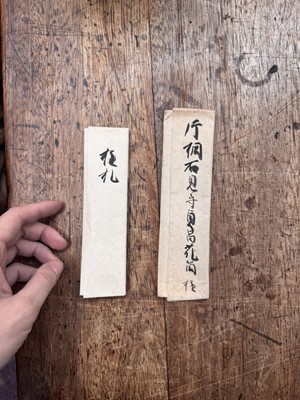 片桐石見守貞昌花筒 極
極札